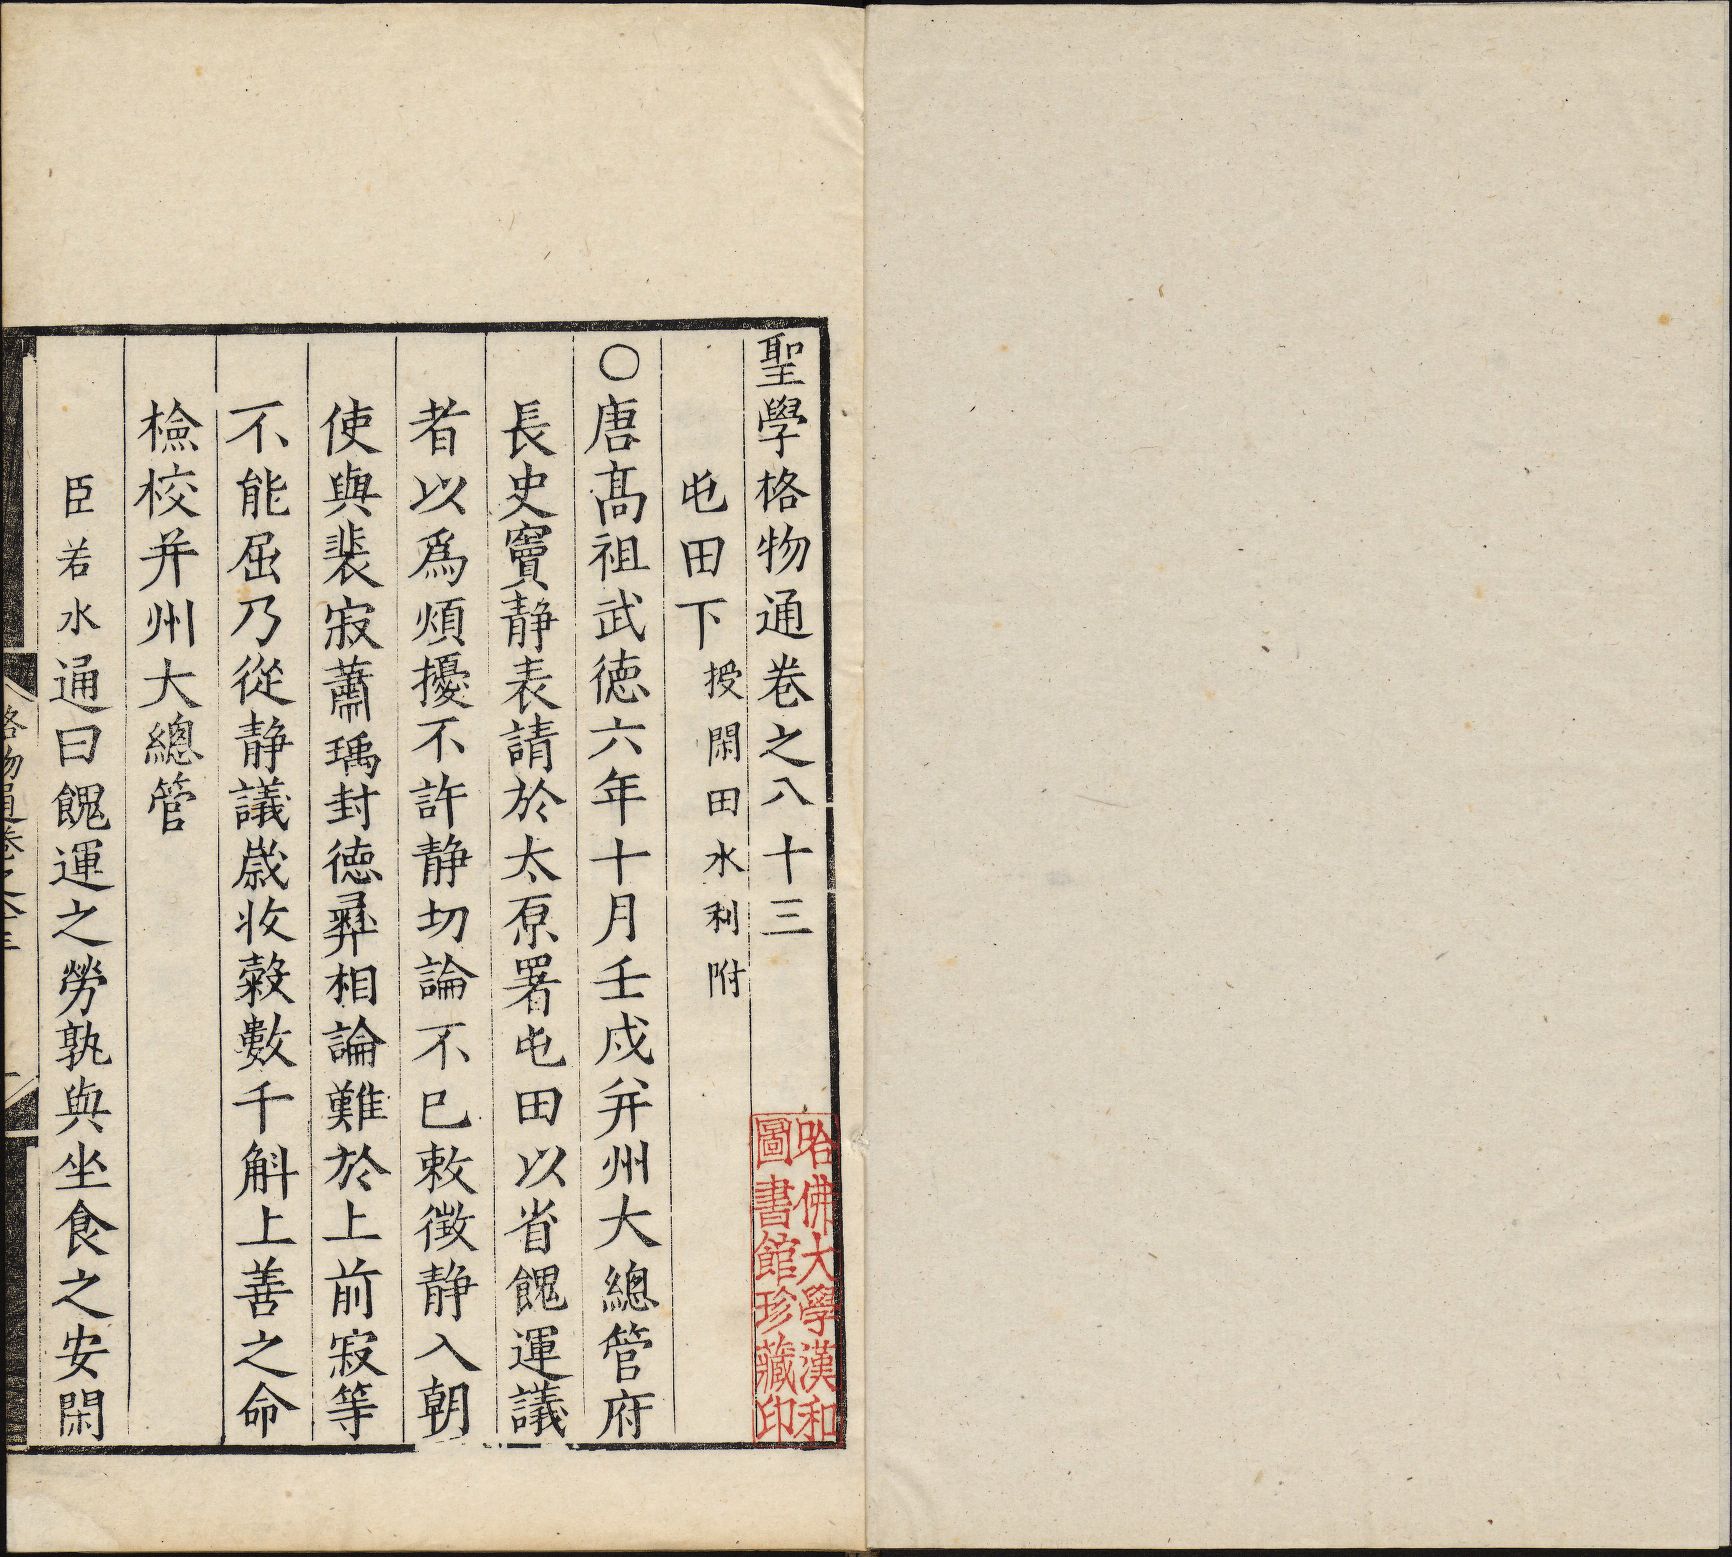 聖學格物通卷之八十三
屯田下 授閑田水利附
○唐髙祖武徳六年十月壬戍并州大總管府
長史竇静表請於太原署屯田以省餽運議
者以爲煩擾不許静切論不已敕徴静入朝
使與裴寂蕭瑀封徳彛相論難於上前寂等
不能屈乃從静議歲收糓數千斛上善之命
檢校并州大總管
臣若水通曰餽運之勞孰與坐食之安閑
哈佛大學漢和
圖書館珍藏印